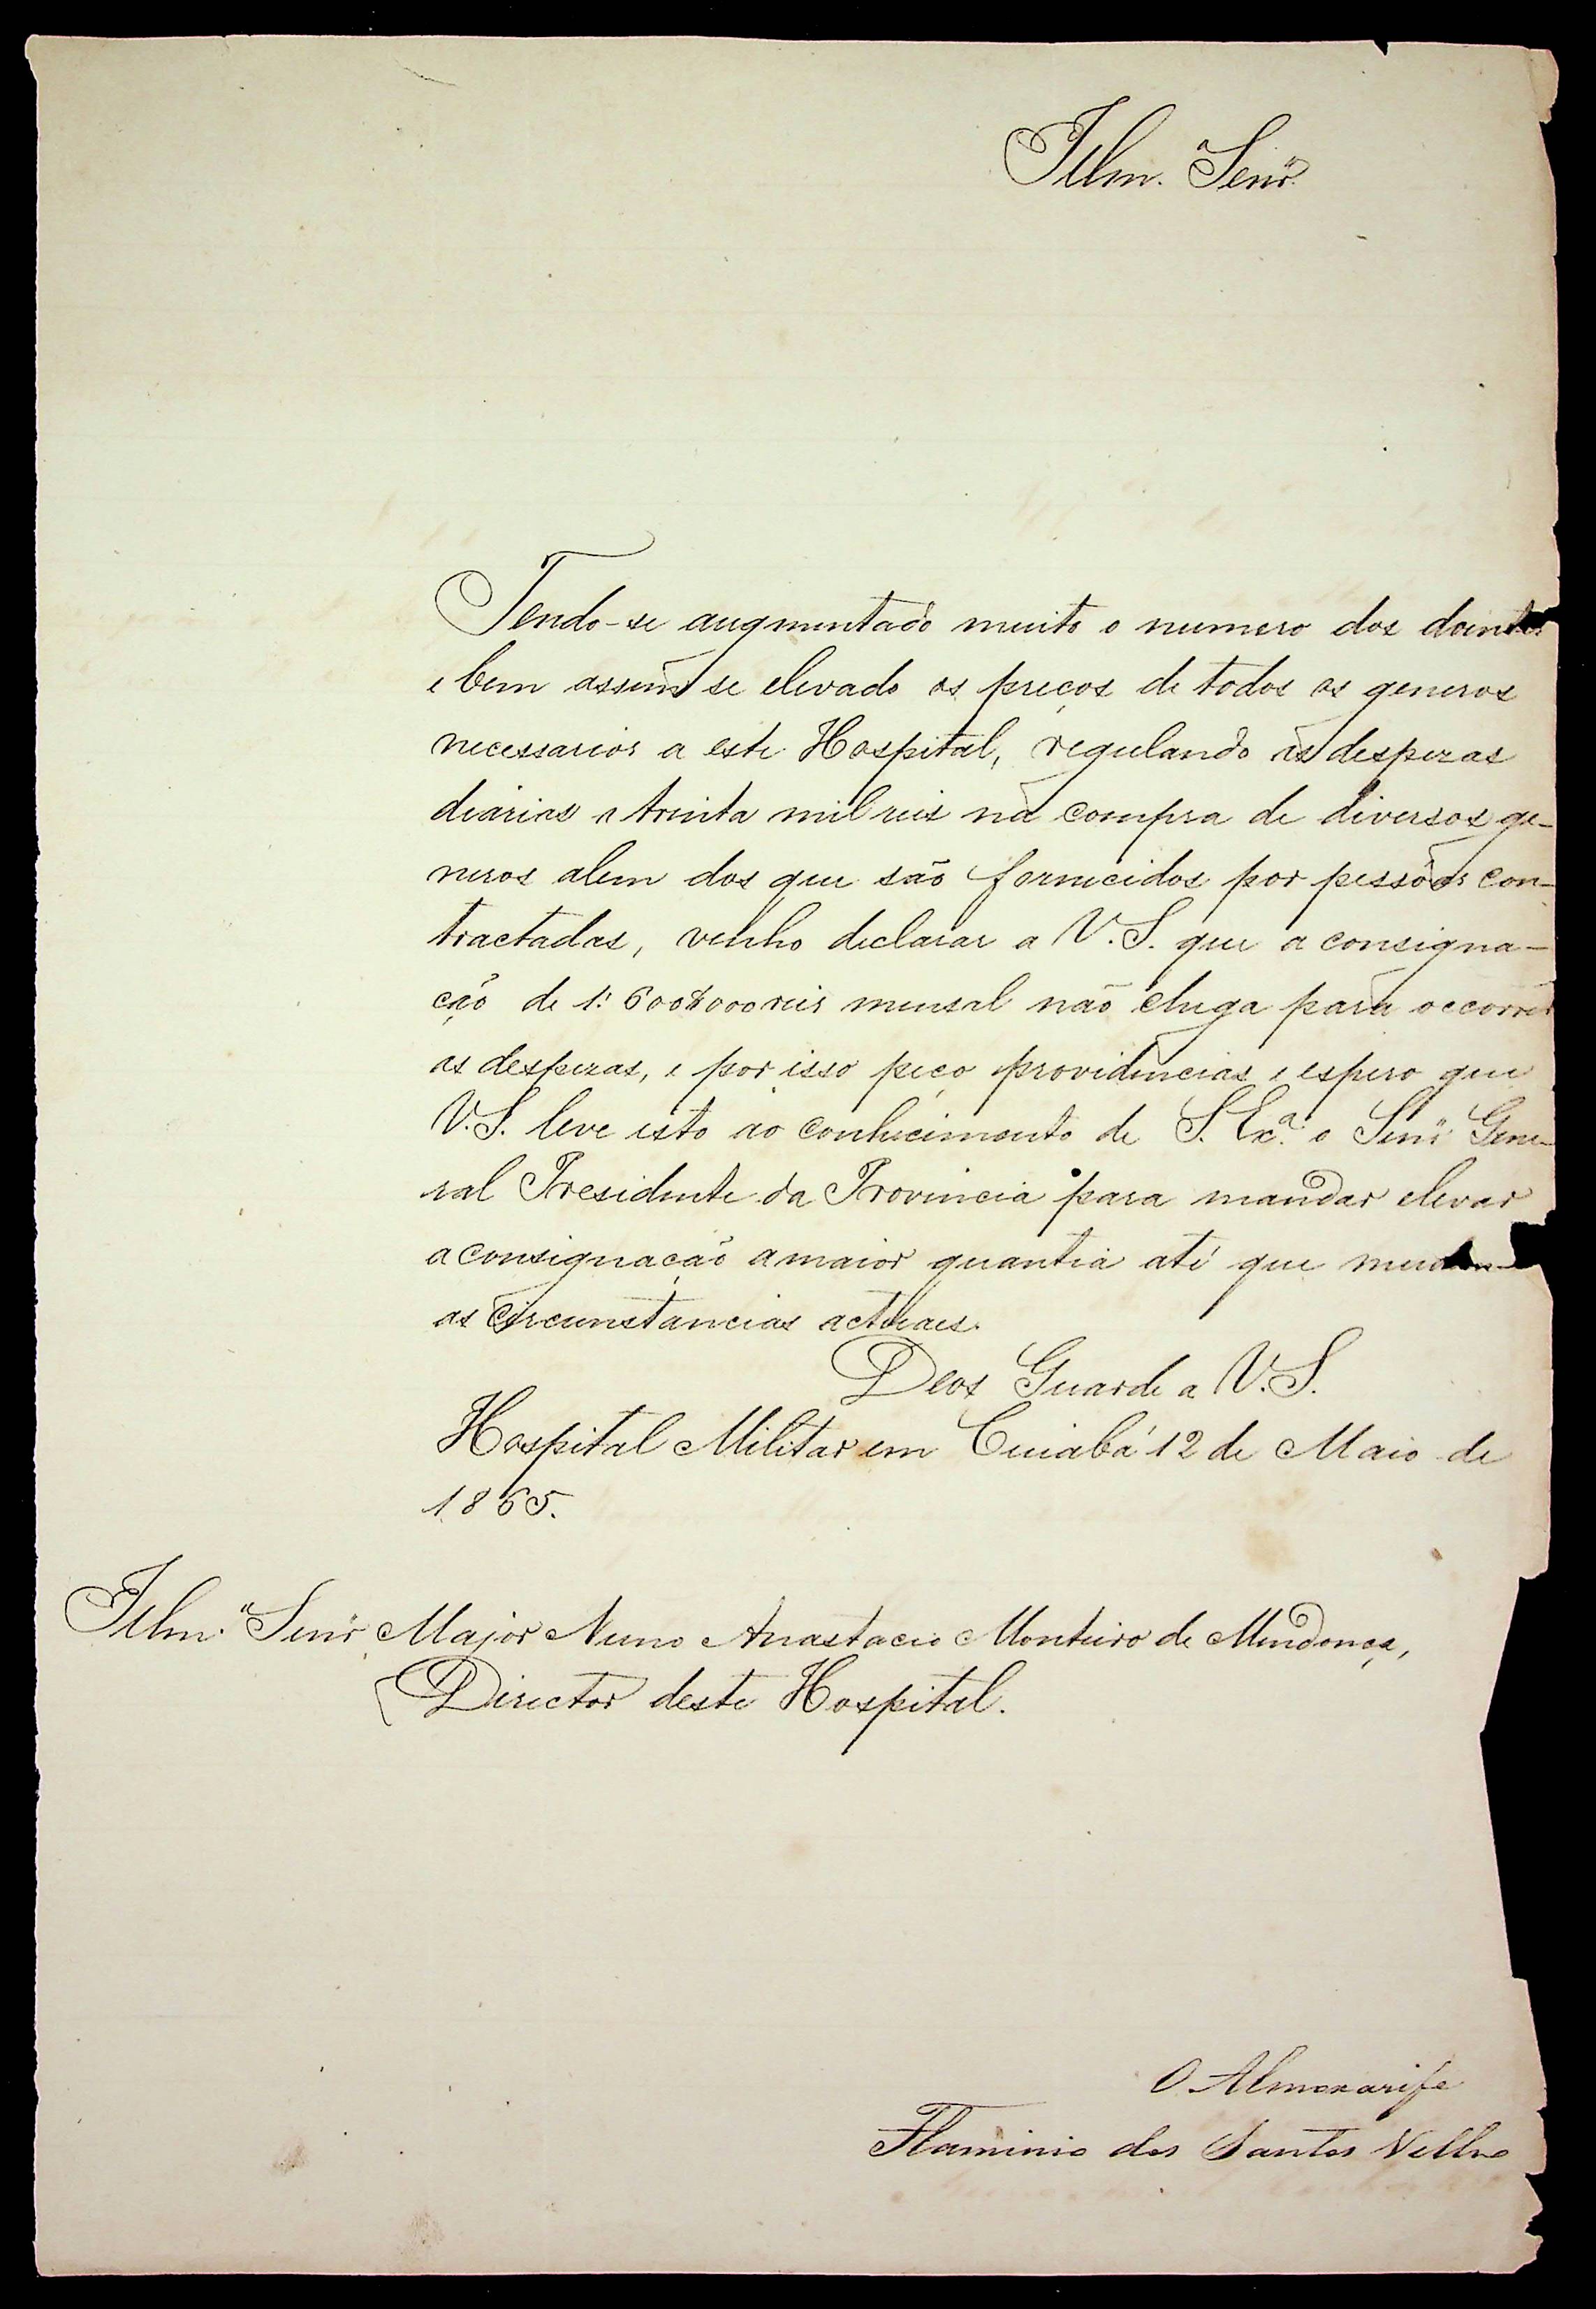 Illm.º Senr.
Tendo-se augmentado muito o numero dos doentes
e bem assim se elevado os preços de todos os generos
necessarios a este Hospital, regulando as despezas
diarias a trinta mil reis na compra de diversos ge-
neros alem dos que são fornecidos por pessôas con-
tractadas, venho declarar a V.S. que a consigna-
ção de 1:600$000 reis mensal não chega para occorrer
as despezas, e por isso peço providencias e espero que
V.S. leve isto ao conhecimento de S. Ex.ª o Senr. Gene-
ral Presidente da Provincia para mandar elevar
a consignação a maior quantia até que mudem
as circunstancias actuaes.
Deos Guarde a V.S.
Hospital Militar em Cuiabá 12 de Maio de
1865.
Illm.º Senr. Major Nuno Anastacio Monteiro de Mendonça,
Director deste Hospital.
O Almoxarife
Flaminio dos Santos Velho